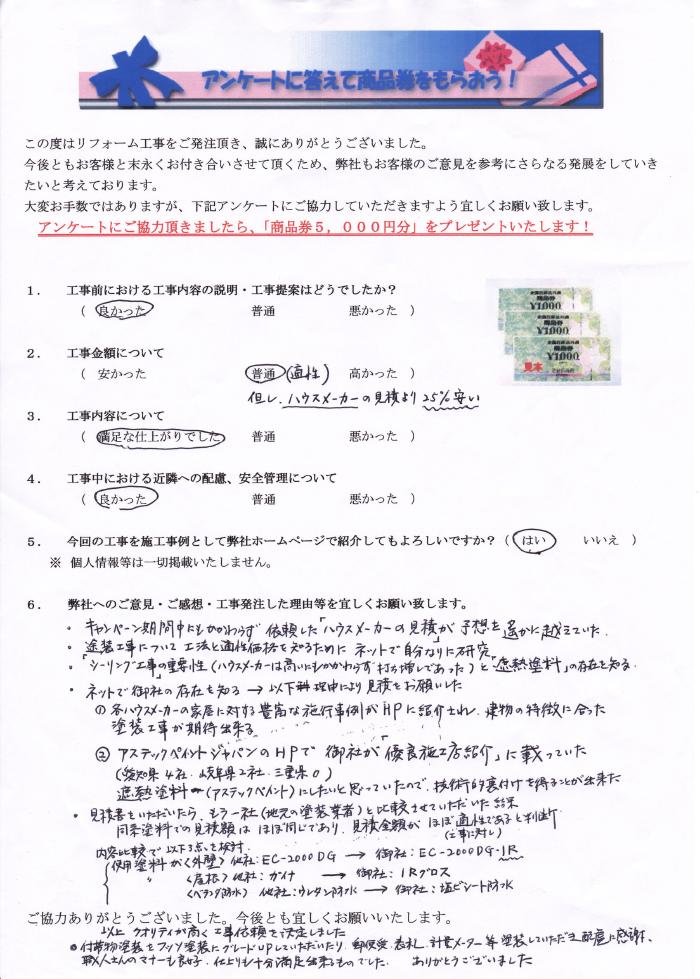 アンケートに答えて商品券をもらおう！
この度はリフォーム工事をご発注頂き、誠にありがとうございました。
今後ともお客様と末永くお付き合いさせて頂くため、弊社もお客様のご意見を参考にさらなる発展をしていき
たいと考えております。
大変お手数ではありますが、下記アンケートにご協力していただきますよう宜しくお願い致します。
アンケートにご協力頂きましたら、「商品券５，０００円分」をプレゼントいたします！
１． 工事前における工事内容の説明・工事提案はどうでしたか？
（ 良かった 普通 悪かった ）
全国百貨店共通
商品券
¥1,000
全国百貨店共通
商品券
¥1,000
全国百貨店共通
商品券
¥1,000
見本
２． 工事金額について
（ 安かった 普通 (適性) 高かった ）
但し、ハウスメーカーの見積より25%安い
３． 工事内容について
（ 満足な仕上がりでした 普通 悪かった ）
４． 工事中における近隣への配慮、安全管理について
（ 良かった 普通 悪かった ）
５． 今回の工事を施工事例として弊社ホームページで紹介してもよろしいですか？（ はい いいえ ）
※ 個人情報等は一切掲載いたしません。
６． 弊社へのご意見・ご感想・工事発注した理由等を宜しくお願い致します。
・ キャンペーン期間中にもかかわらず 依頼した「ハウスメーカーの見積」が予想を遥かに越えていた.
・ 塗装工事について 工法と適性価格を知るために ネットで自分なりに研究
・「シーリング工事」の重要性(ハウスメーカーは高いにもかかわらず打ち増しであった)と「遮熱塗料」の存在を知る.
・ ネットで御社の存在を知る → 以下理由により見積をお願いした
① 各ハウスメーカーの家屋に対する豊富な施行事例がHPに紹介され、建物の特徴に合った
塗装工事が期待出来る
② アステックペイントジャパンのHPで 御社が「優良施工店紹介」に載っていた
(愛知県4社.岐阜県2社.三重県0)
遮熱塗料(アステックペイント)にしたいと思っていたので、技術的裏付けを得ることが出来た
・ 見積書をいただいたら、もう一社(地元の塗装業者)と比較させていただいた結果
同系塗料での見積額は ほぼ同じであり、見積金額が ほぼ適性であると判断
(工事に対し)
内容比較で以下3点を検討
使用塗料が〈外壁〉他社:EC-2000DG → 御社:EC-2000DG-IR
〃 〈屋根〉他社:ガイナ → 御社:IRグロス
〈ベランダ防水〉 他社:ウレタン防水 → 御社:塩ビシート防水
ご協力ありがとうございました。今後とも宜しくお願いいたします。
以上 クオリティが高く工事依頼を決定しました
●付帯物塗装をフッソ塗装にグレードUPしていただいたり、郵便受、表札、計量メーター等塗装していただき配慮に感謝、
職人さんのマナーも良好、仕上りも十分満足出来るものでした。 ありがとうございました